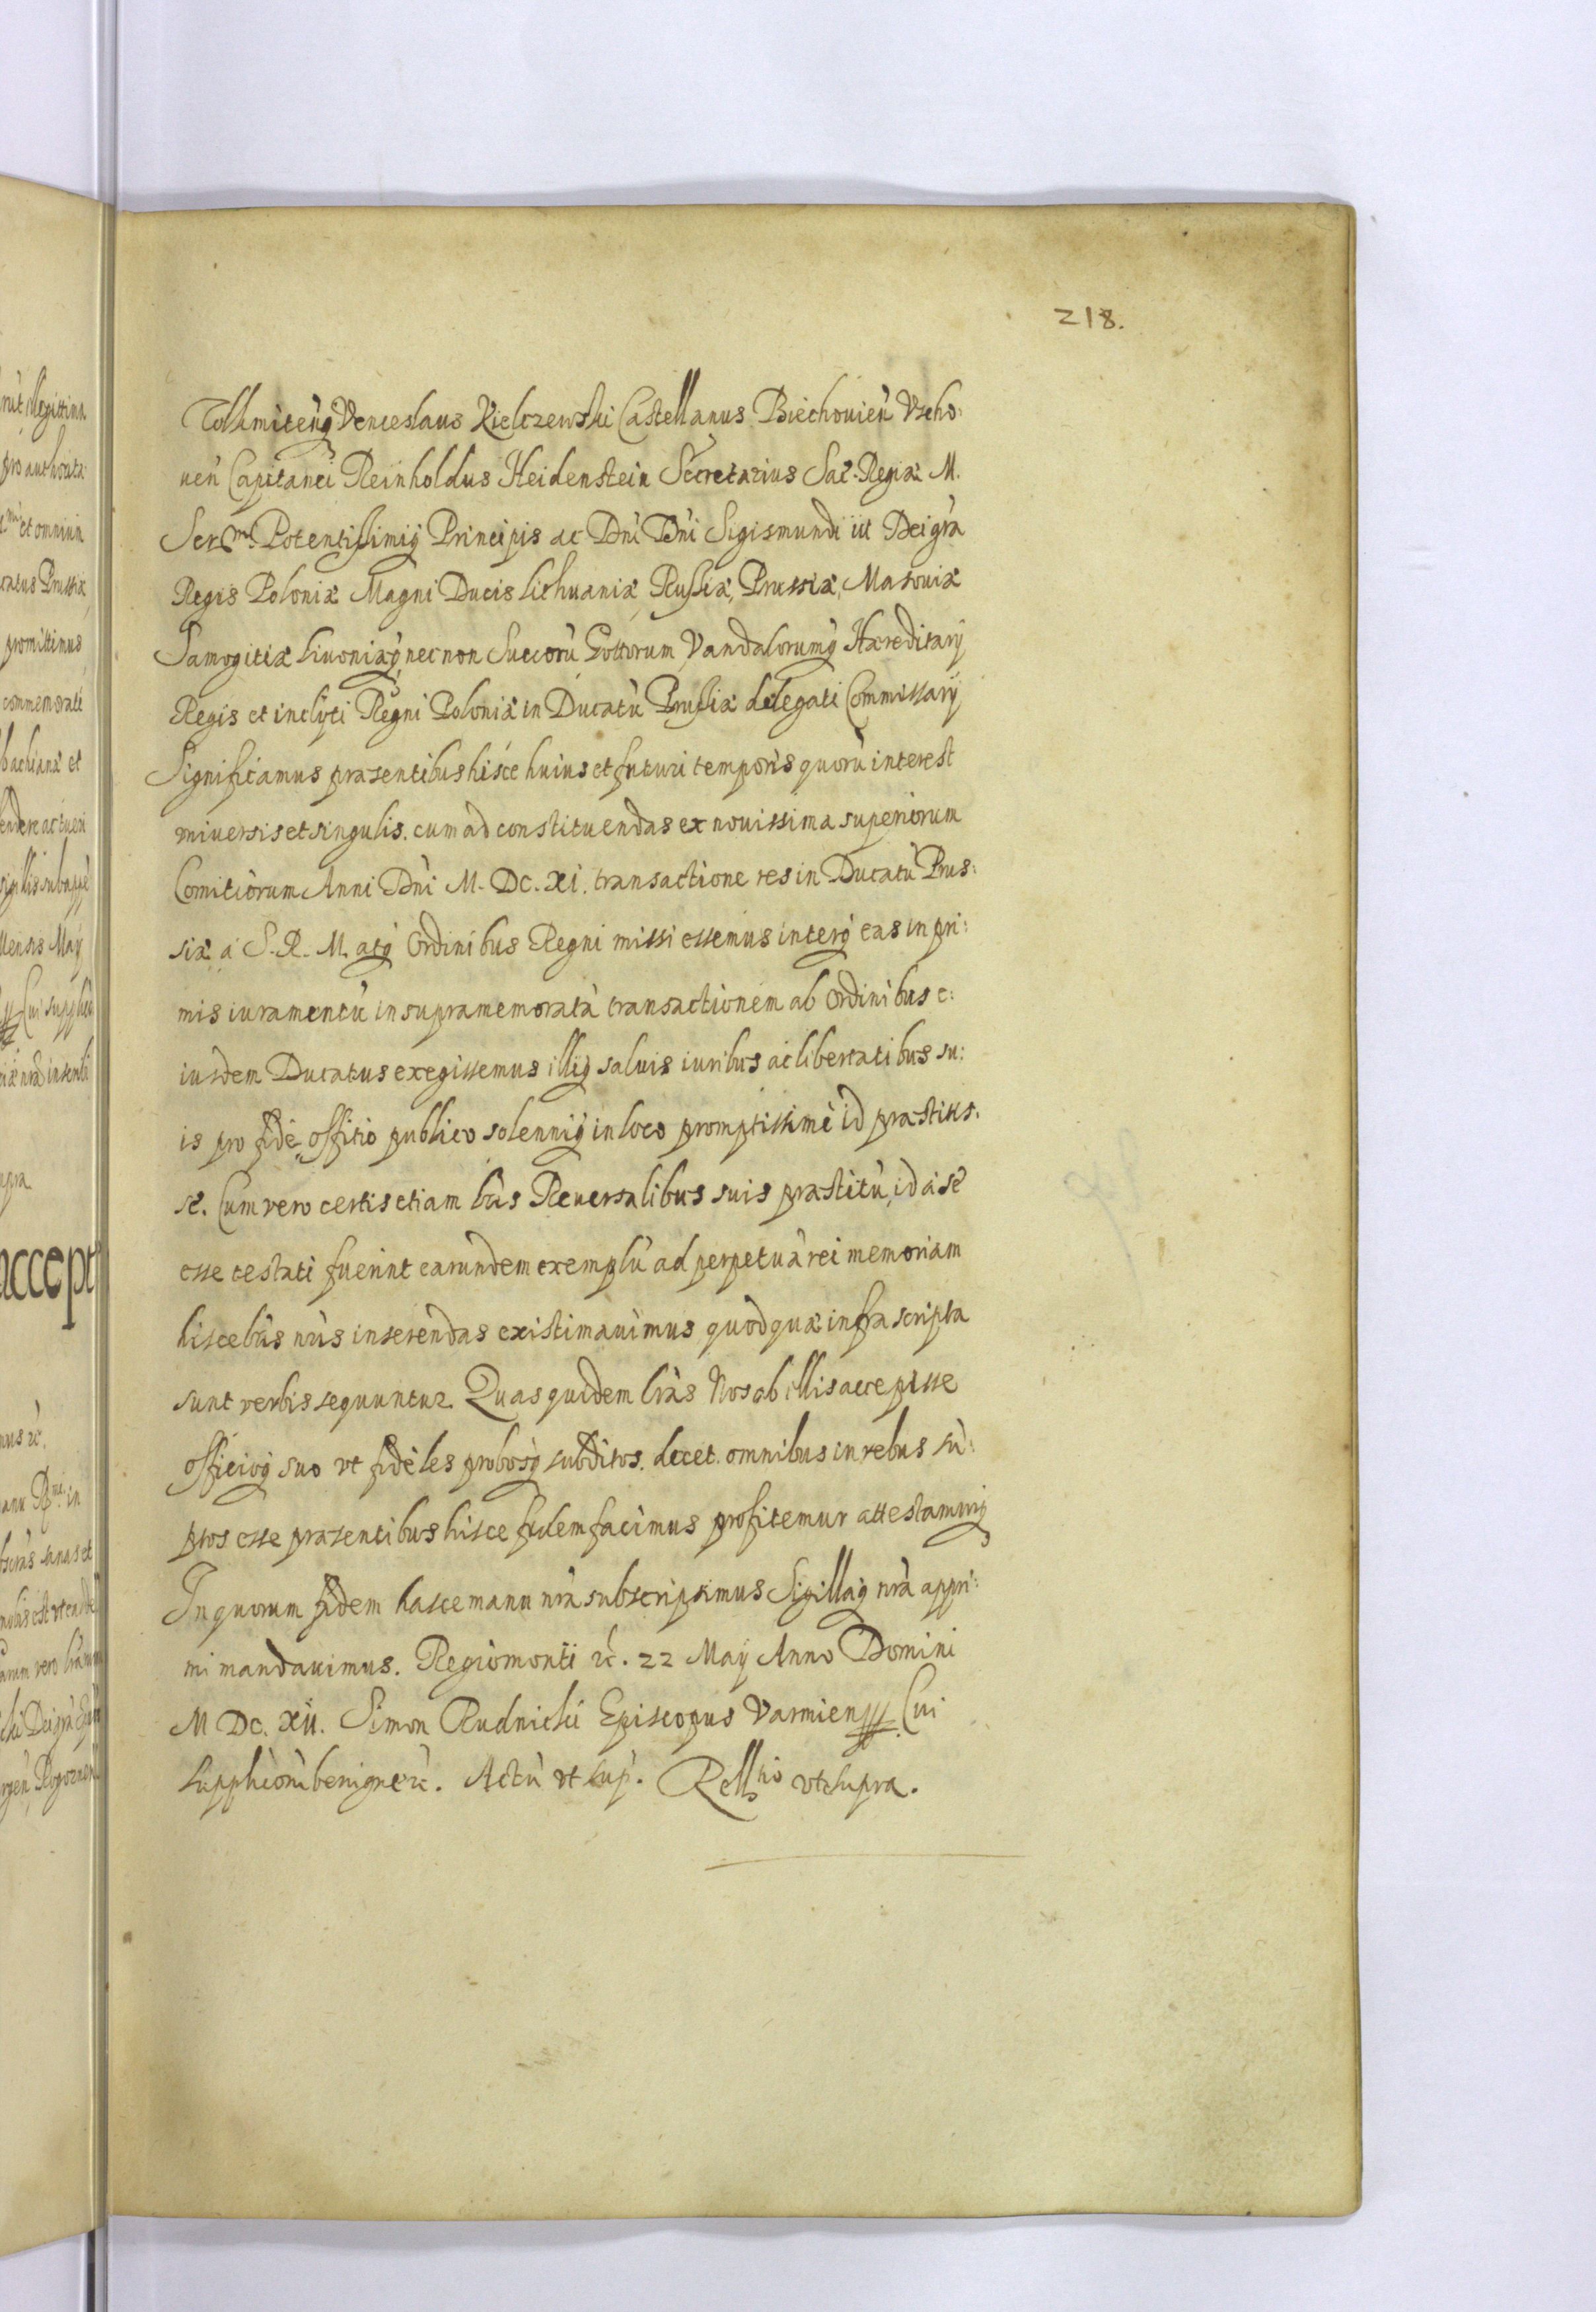 218.
Tolkmiteñq Venceslaus Kielczewski Castellanus Biechouieñ Vscho:
ueñ Capitanei Reinholdus Heidenstein Secretarius Sac. Regiæ M.
Ser.mi Potentissimiq Principis ac Dñi Dñi Sigismundi iii Dei grã
Regis Poloniæ Magni Ducis Lithuaniæ, Russiæ, Prussiæ, Masouiæ
Samogitiæ Liuoniæq necnon Suecorũ Gottorum Vandalorumq Hæreditarÿ
Regis et inclyti Regni Poloniæ in Ducatu Prussiæ delegati Commissarÿ
Significamus præsentibus hisce huius et futuri temporis quorũ interest
vniuersis et singulis. cum ad constituendas ex nouissima superiorum
Comitiorum Anni Dñi M. DC. XI. transactione res in Ducatu Prus:
siæ a S. R. M. atq Ordinibus Regni missi essemus interq eas in pri:
mis iuramentũ in supramemoratã transactionem ab Ordinibus e:
iusdem Ducatus exegissemus illiq saluis iuribus ac libertatibus su:
is pro fide officio publico solenniq in loco promptissime id præstitis:
se. Cum vero certis etiam lris Reuersalibus suis præstitũ id a se
esse testati fuerint earundem exemplũ ad perpetuã rei memoriam
hisce lris nris inserendas existimauimus quod quæ infra scripta
sunt verbis sequuntur. Quas quidem lras Nos ab illis accepisse
officioq suo vt fideles probosq subditos. decet. omnibus in rebus fũ:
ctos esse præsentibus hisce fidem facimus profitemur attestamurq
In quorum fidem hasce manu nrã subscripsimus Sigillaq nrã appri:
mi mandauimus. Regiomonti &c. 22 Maÿ Anno Domini
M DC. XII. Simon Rudnicki Episcopus Varmien Cui
supplicoñi benigne &c. Actũ vt sup. Rellatio vt supra.